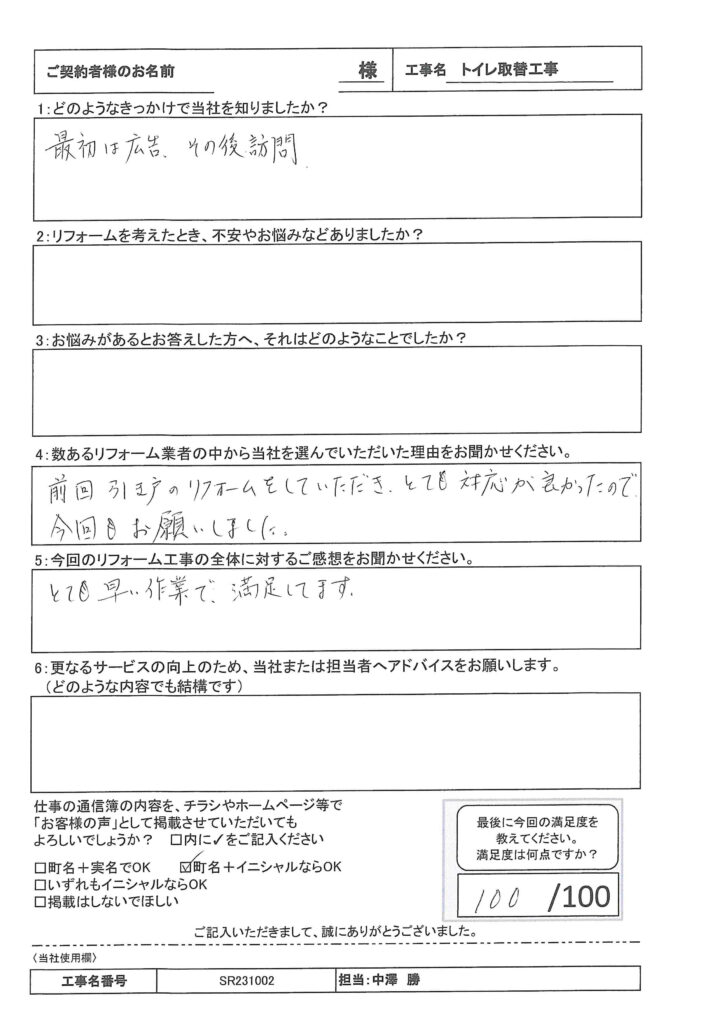 ご契約者様のお名前 様 工事名 トイレ取替工事
1:どのようなきっかけで当社を知りましたか？
最初は広告、その後訪問
2:リフォームを考えたとき、不安やお悩みなどありましたか？
3:お悩みがあるとお答えした方へ、それはどのようなことでしたか？
4:数あるリフォーム業者の中から当社を選んでいただいた理由をお聞かせください。
前回引き戸のリフォームをしていただき、とても対応が良かったので
今回もお願いしました。
5:今回のリフォーム工事の全体に対するご感想をお聞かせください。
とても早い作業で、満足してます。
6:更なるサービスの向上のため、当社または担当者へアドバイスをお願いします。
（どのような内容でも結構です）
仕事の通信簿の内容を、チラシやホームページ等で
「お客様の声」として掲載させていただいても
よろしいでしょうか？ □内に✓をご記入ください
□町名＋実名でOK ☑町名＋イニシャルならOK
□いずれもイニシャルならOK
□掲載はしないでほしい
最後に今回の満足度を
教えてください。
満足度は何点ですか？
100 /100
ご記入いただきまして、誠にありがとうございました。
〈当社使用欄〉
工事名番号 SR231002 担当:中澤 勝